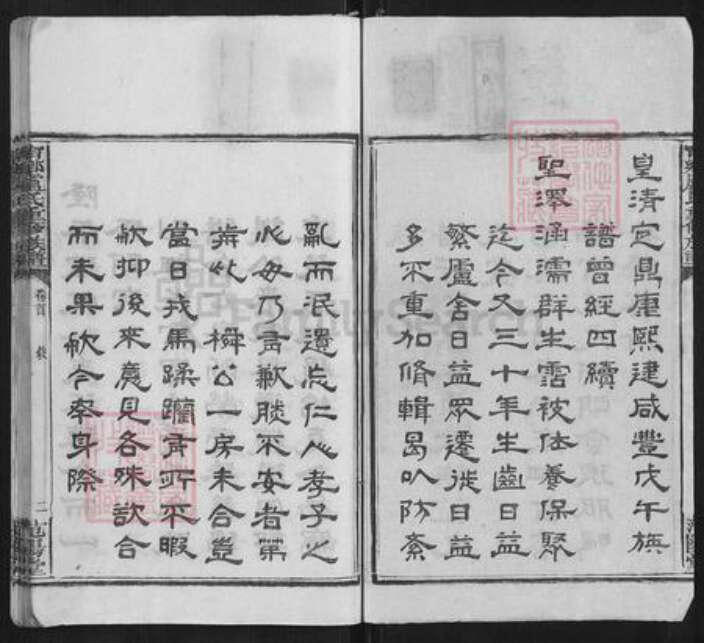 皇清定鼎康熙建咸豐戊午族
譜曾經四續
聖澤涵濡群生霑被休養保聚
迄今又三十年生齒日益
繁廬舍日益眾遷徙日益
多不重加脩輯曷以防紊
亂而泯遺忘仁人孝子之
心毋乃有歉然不安者第
公一房未合豈
當日戎馬蹂躪有所不暇
歟抑後來意見各殊欲合
而未果歟今奉身際
氏重修族譜
卷首 敘
二
范陽堂
FamilySearch